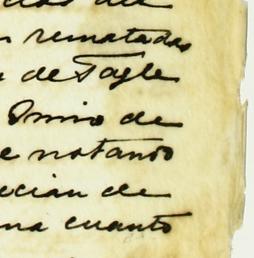 n rematadas
n de Tagle
de
e notando
ecian de
na cuanto